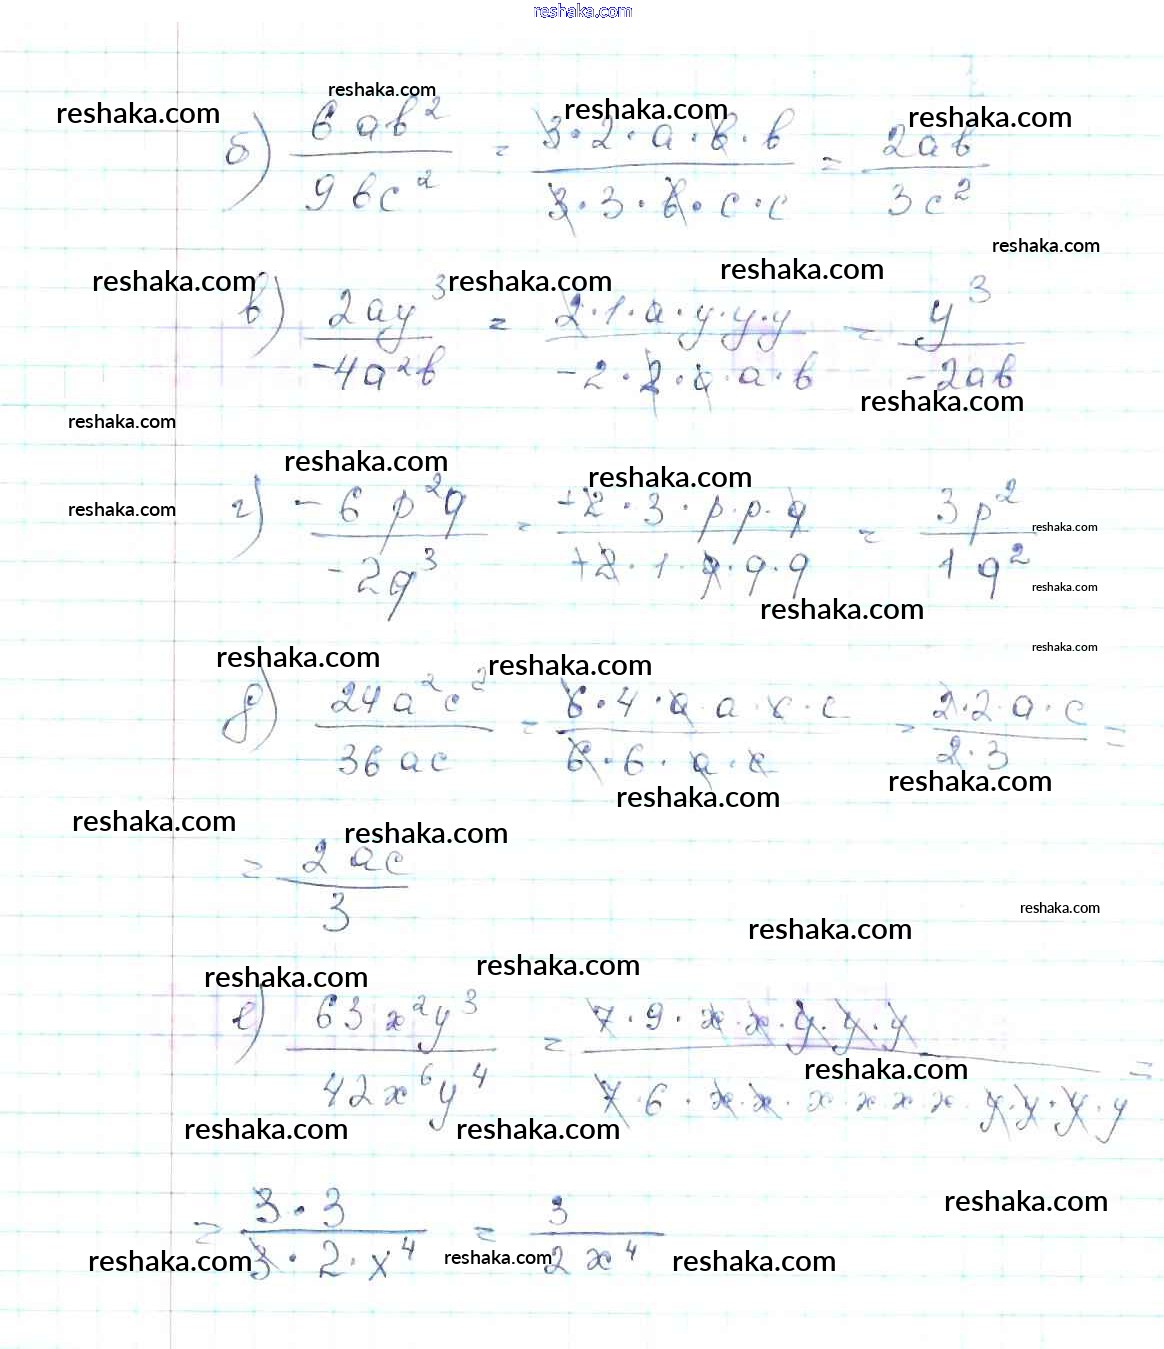 reshaka.com
reshaka.com reshaka.com reshaka.com reshaka.com
б) 6ab²/9bc² = 3·2·a·b·b/3·3·b·c·c = 2ab/3c²
reshaka.com
reshaka.com reshaka.com reshaka.com
в) 2ay³/-4a²b = 2·1·a·y·y·y/-2·2·a·a·b = y³/-2ab
reshaka.com
reshaka.com
reshaka.com reshaka.com
г) -6p²q/-2q³ = +2·3·p·p·q/+2·1·q·q·q = 3p²/1q²
reshaka.com reshaka.com
reshaka.com
reshaka.com
reshaka.com
reshaka.com reshaka.com
д) 24a²c²/36ac = 6·4·a·a·c·c/6·6·a·c = 2·2·a·c/2·3 =
reshaka.com reshaka.com
reshaka.com reshaka.com
= 2ac/3
reshaka.com
reshaka.com
reshaka.com reshaka.com
е) 63x²y³/42x⁶y⁴ = 7·9·x·x·y·y·y/7·6·x·x·x·x·x·x·y·y·y·y =
reshaka.com
reshaka.com reshaka.com
reshaka.com
= 3·3/3·2·x⁴ = 3/2x⁴
reshaka.com reshaka.com reshaka.com